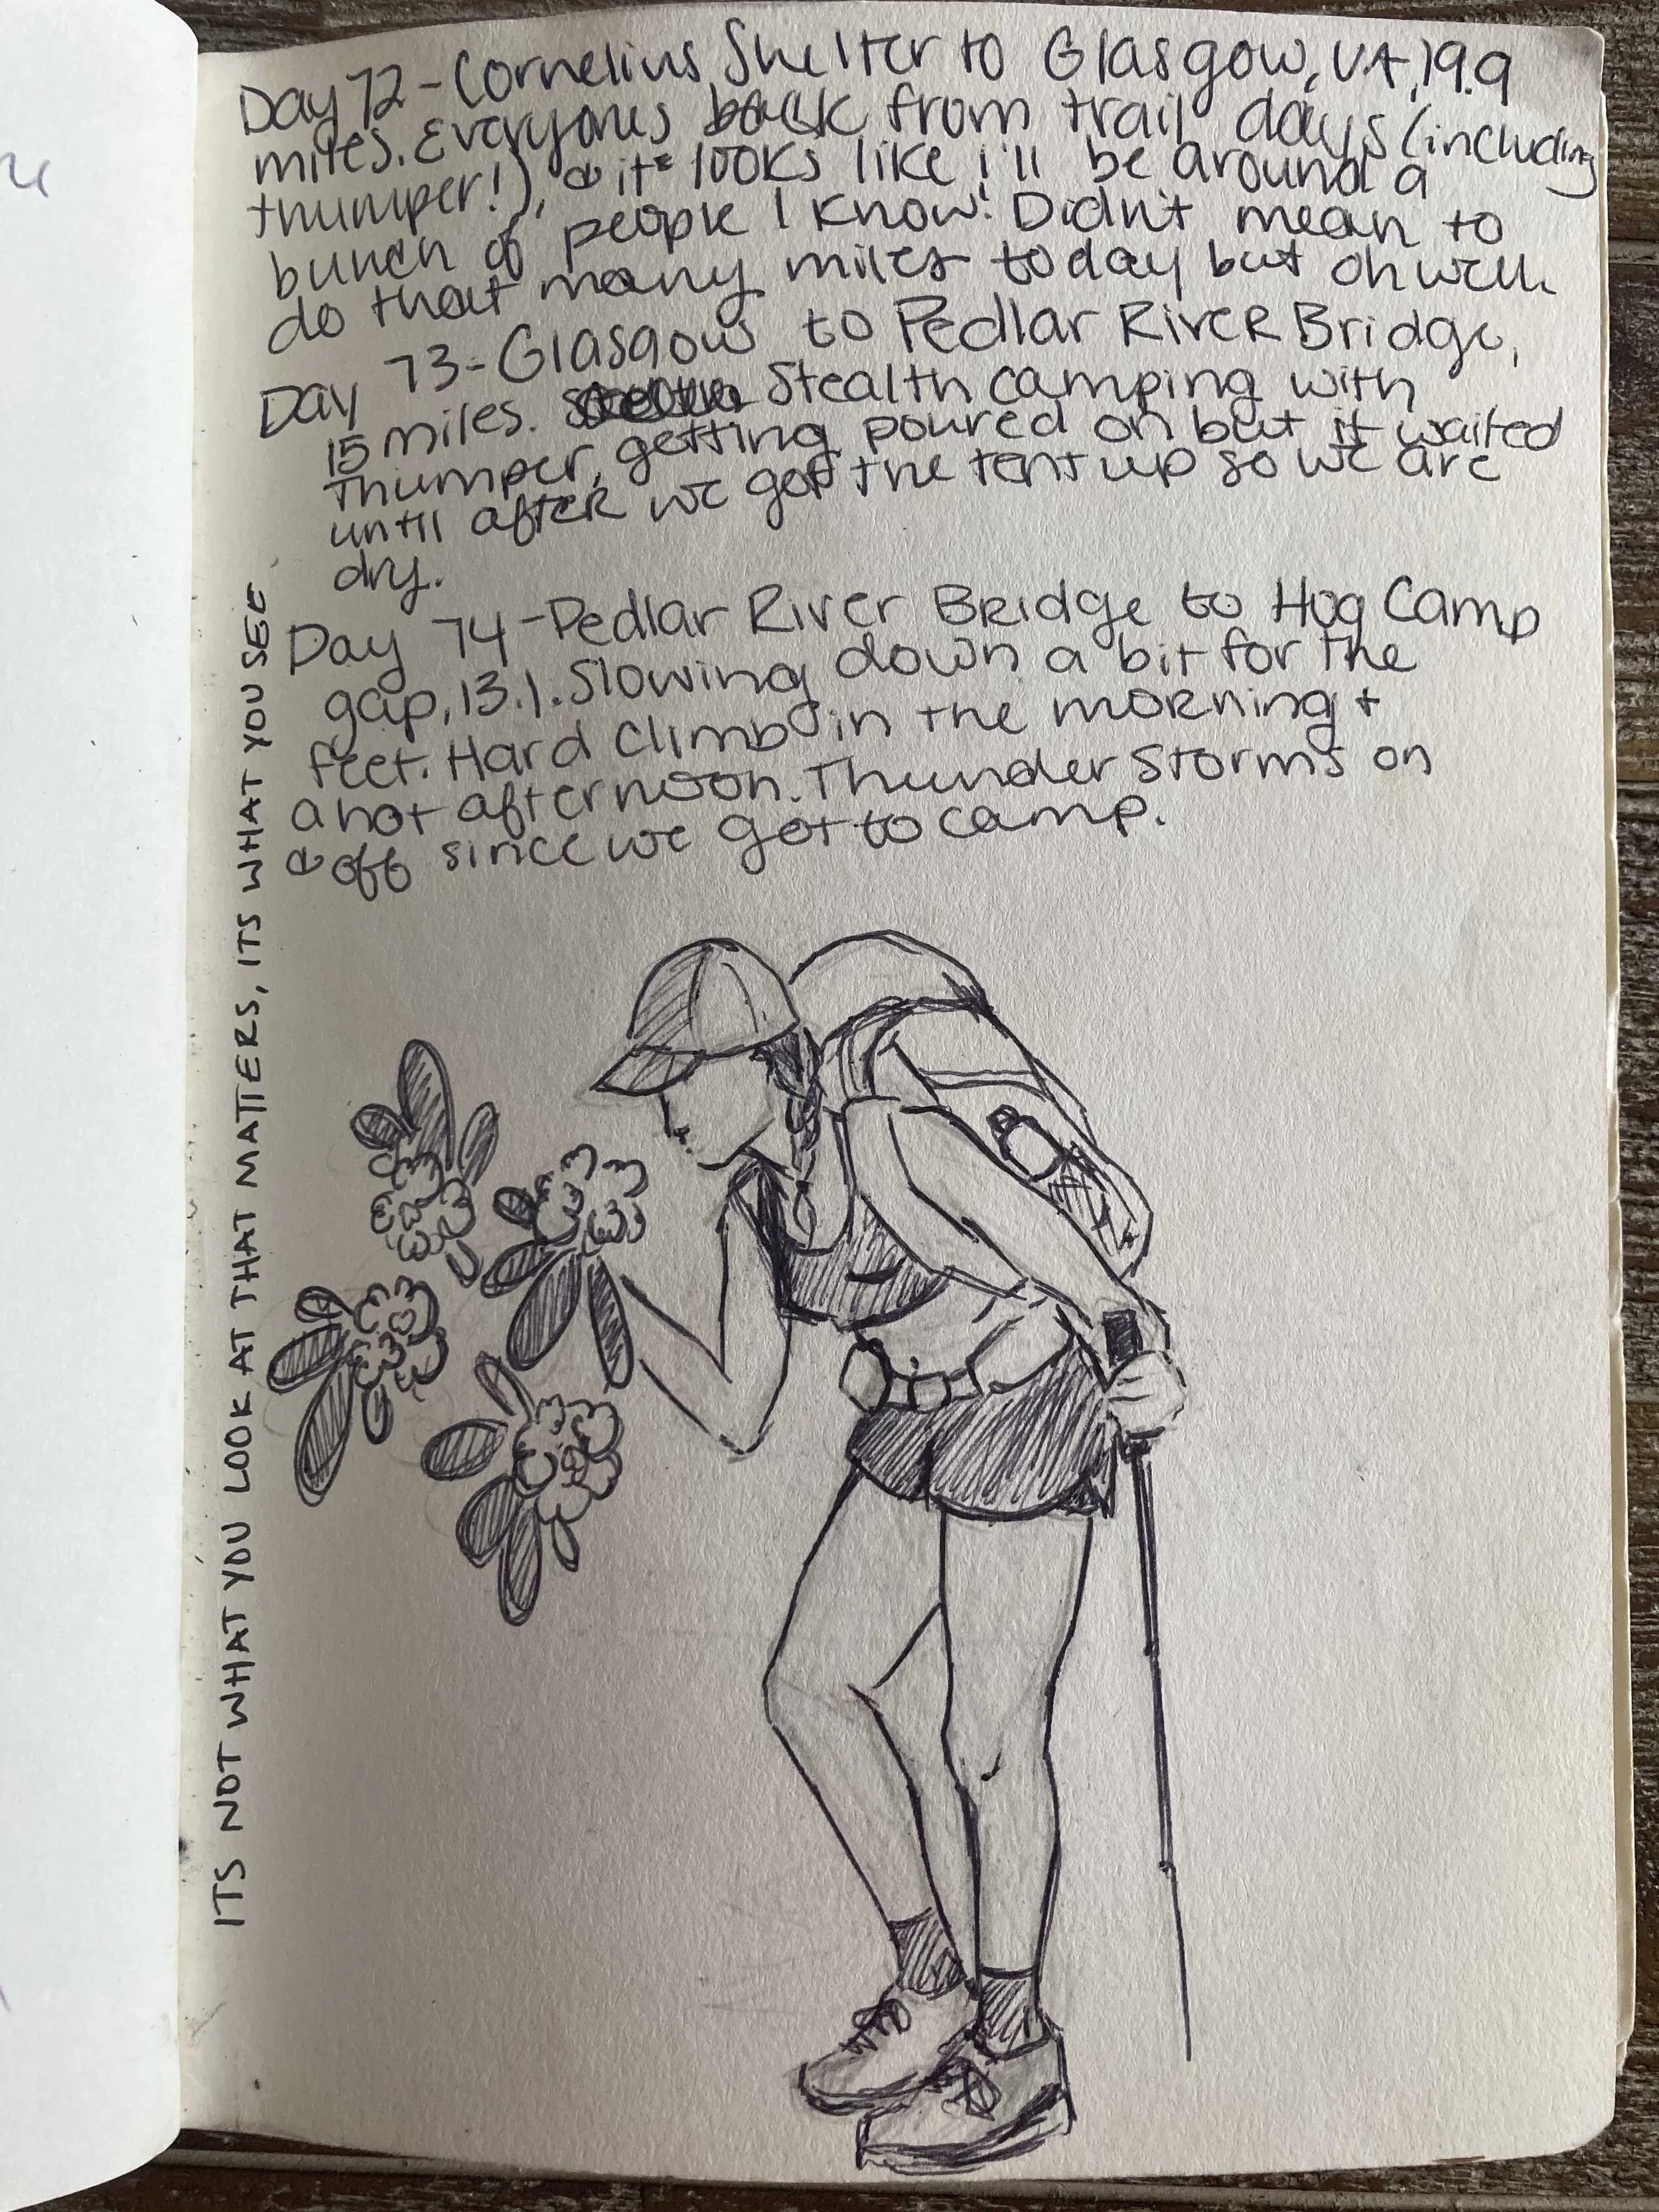 Day 72 - Cornelius Shelter to Glasgow, VA, 19.9
miles. Everyones back from trail days (including
thumper!), & it looks like i'll be around a
bunch of people I know! Didn't mean to
do that many miles today but oh well.
Day 73 - Glasgow to Pedlar River Bridge,
15 miles. Stealth camping with
Thumper, getting poured on but it waited
until after we got the tent up so we are
dry.
Day 74 - Pedlar River Bridge to Hog Camp
gap, 13.1. Slowing down a bit for the
feet. Hard climb in the morning +
a hot afternoon. Thunder storms on
& off since we got to camp.
ITS NOT WHAT YOU LOOK AT THAT MATTERS, ITS WHAT YOU SEE